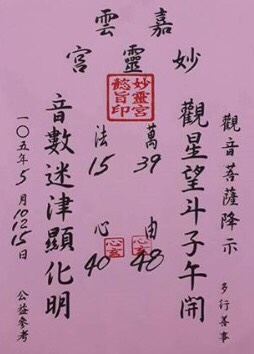 嘉雲
妙靈宮
妙靈宮
懿旨印
觀音菩薩降示
多行善事
觀星望斗子午開
萬 39
由 48
心玄
法 15
心 40
心玄
音數迷津顯化明
一○五年5月10 12 15日
公益參考